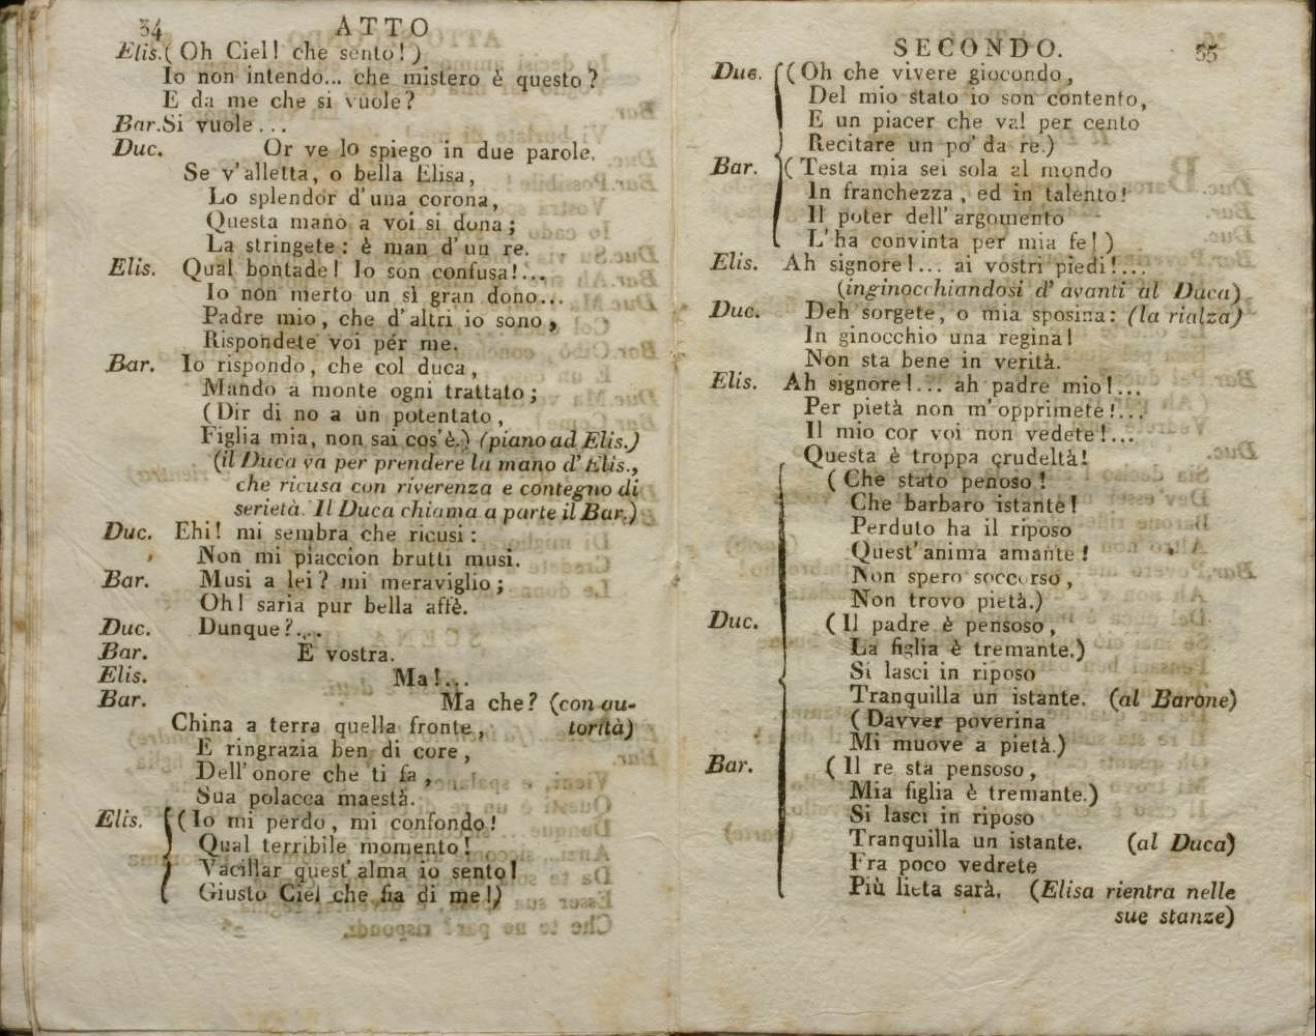 34 ATTO
Elis. (Oh Ciel! che sento!)
Io non intendo... che mistero è questo?
E da me che si vuole?
Bar. Si vuole...
Duc. Or ve lo spiego in due parole.
Se v'alletta, o bella Elisa,
Lo splendor d'una corona,
Questa mano a voi si dona;
La stringete: è man d'un re.
Elis. Qual bontade! Io son confusa!...
Io non merto un sì gran dono...
Padre mio, che d'altri io sono,
Rispondete voi per me.
Bar. Io rispondo, che col duca,
Mando a monte ogni trattato;
(Dir di no a un potentato,
Figlia mia, non sai cos'è.) (piano ad Elis.)
(il Duca va per prendere la mano d'Elis.,
che ricusa con riverenza e contegno di
serietà. Il Duca chiama a parte il Bar.)
Duc. Ehi! mi sembra che ricusi:
Non mi piaccion brutti musi.
Bar. Musi a lei? mi meraviglio;
Oh! saria pur bella affè.
Duc. Dunque?...
Bar. È vostra.
Elis. Ma!...
Bar. Ma che? (con au-
China a terra quella fronte, torità)
E ringrazia ben di core,
Dell'onore che ti fa,
Sua polacca maestà.
Elis. (Io mi perdo, mi confondo!
Qual terribile momento!
Vacillar quest'alma io sento!
Giusto Ciel che fia di me!)
SECONDO. 35
Duc. (Oh che vivere giocondo,
Del mio stato io son contento,
E un piacer che val per cento
Recitare un po' da re.)
Bar. (Testa mia sei sola al mondo
In franchezza, ed in talento!
Il poter dell'argomento
L'ha convinta per mia fe!)
Elis. Ah signore!... ai vostri piedi!...
(inginocchiandosi d'avanti al Duca)
Duc. Deh sorgete, o mia sposina: (la rialza)
In ginocchio una regina!
Non sta bene in verità.
Elis. Ah signore!... ah padre mio!...
Per pietà non m'opprimete!...
Il mio cor voi non vedete!...
Questa è troppa crudeltà!
(Che stato penoso!
Che barbaro istante!
Perduto ha il riposo
Quest'anima amante!
Non spero soccorso,
Non trovo pietà.)
Duc. (Il padre è pensoso,
La figlia è tremante.)
Si lasci in riposo
Tranquilla un istante. (al Barone)
(Davver poverina
Mi muove a pietà.)
Bar. (Il re sta pensoso,
Mia figlia è tremante.)
Si lasci in riposo
Tranquilla un istante. (al Duca)
Fra poco vedrete
Più lieta sarà. (Elisa rientra nelle
sue stanze)